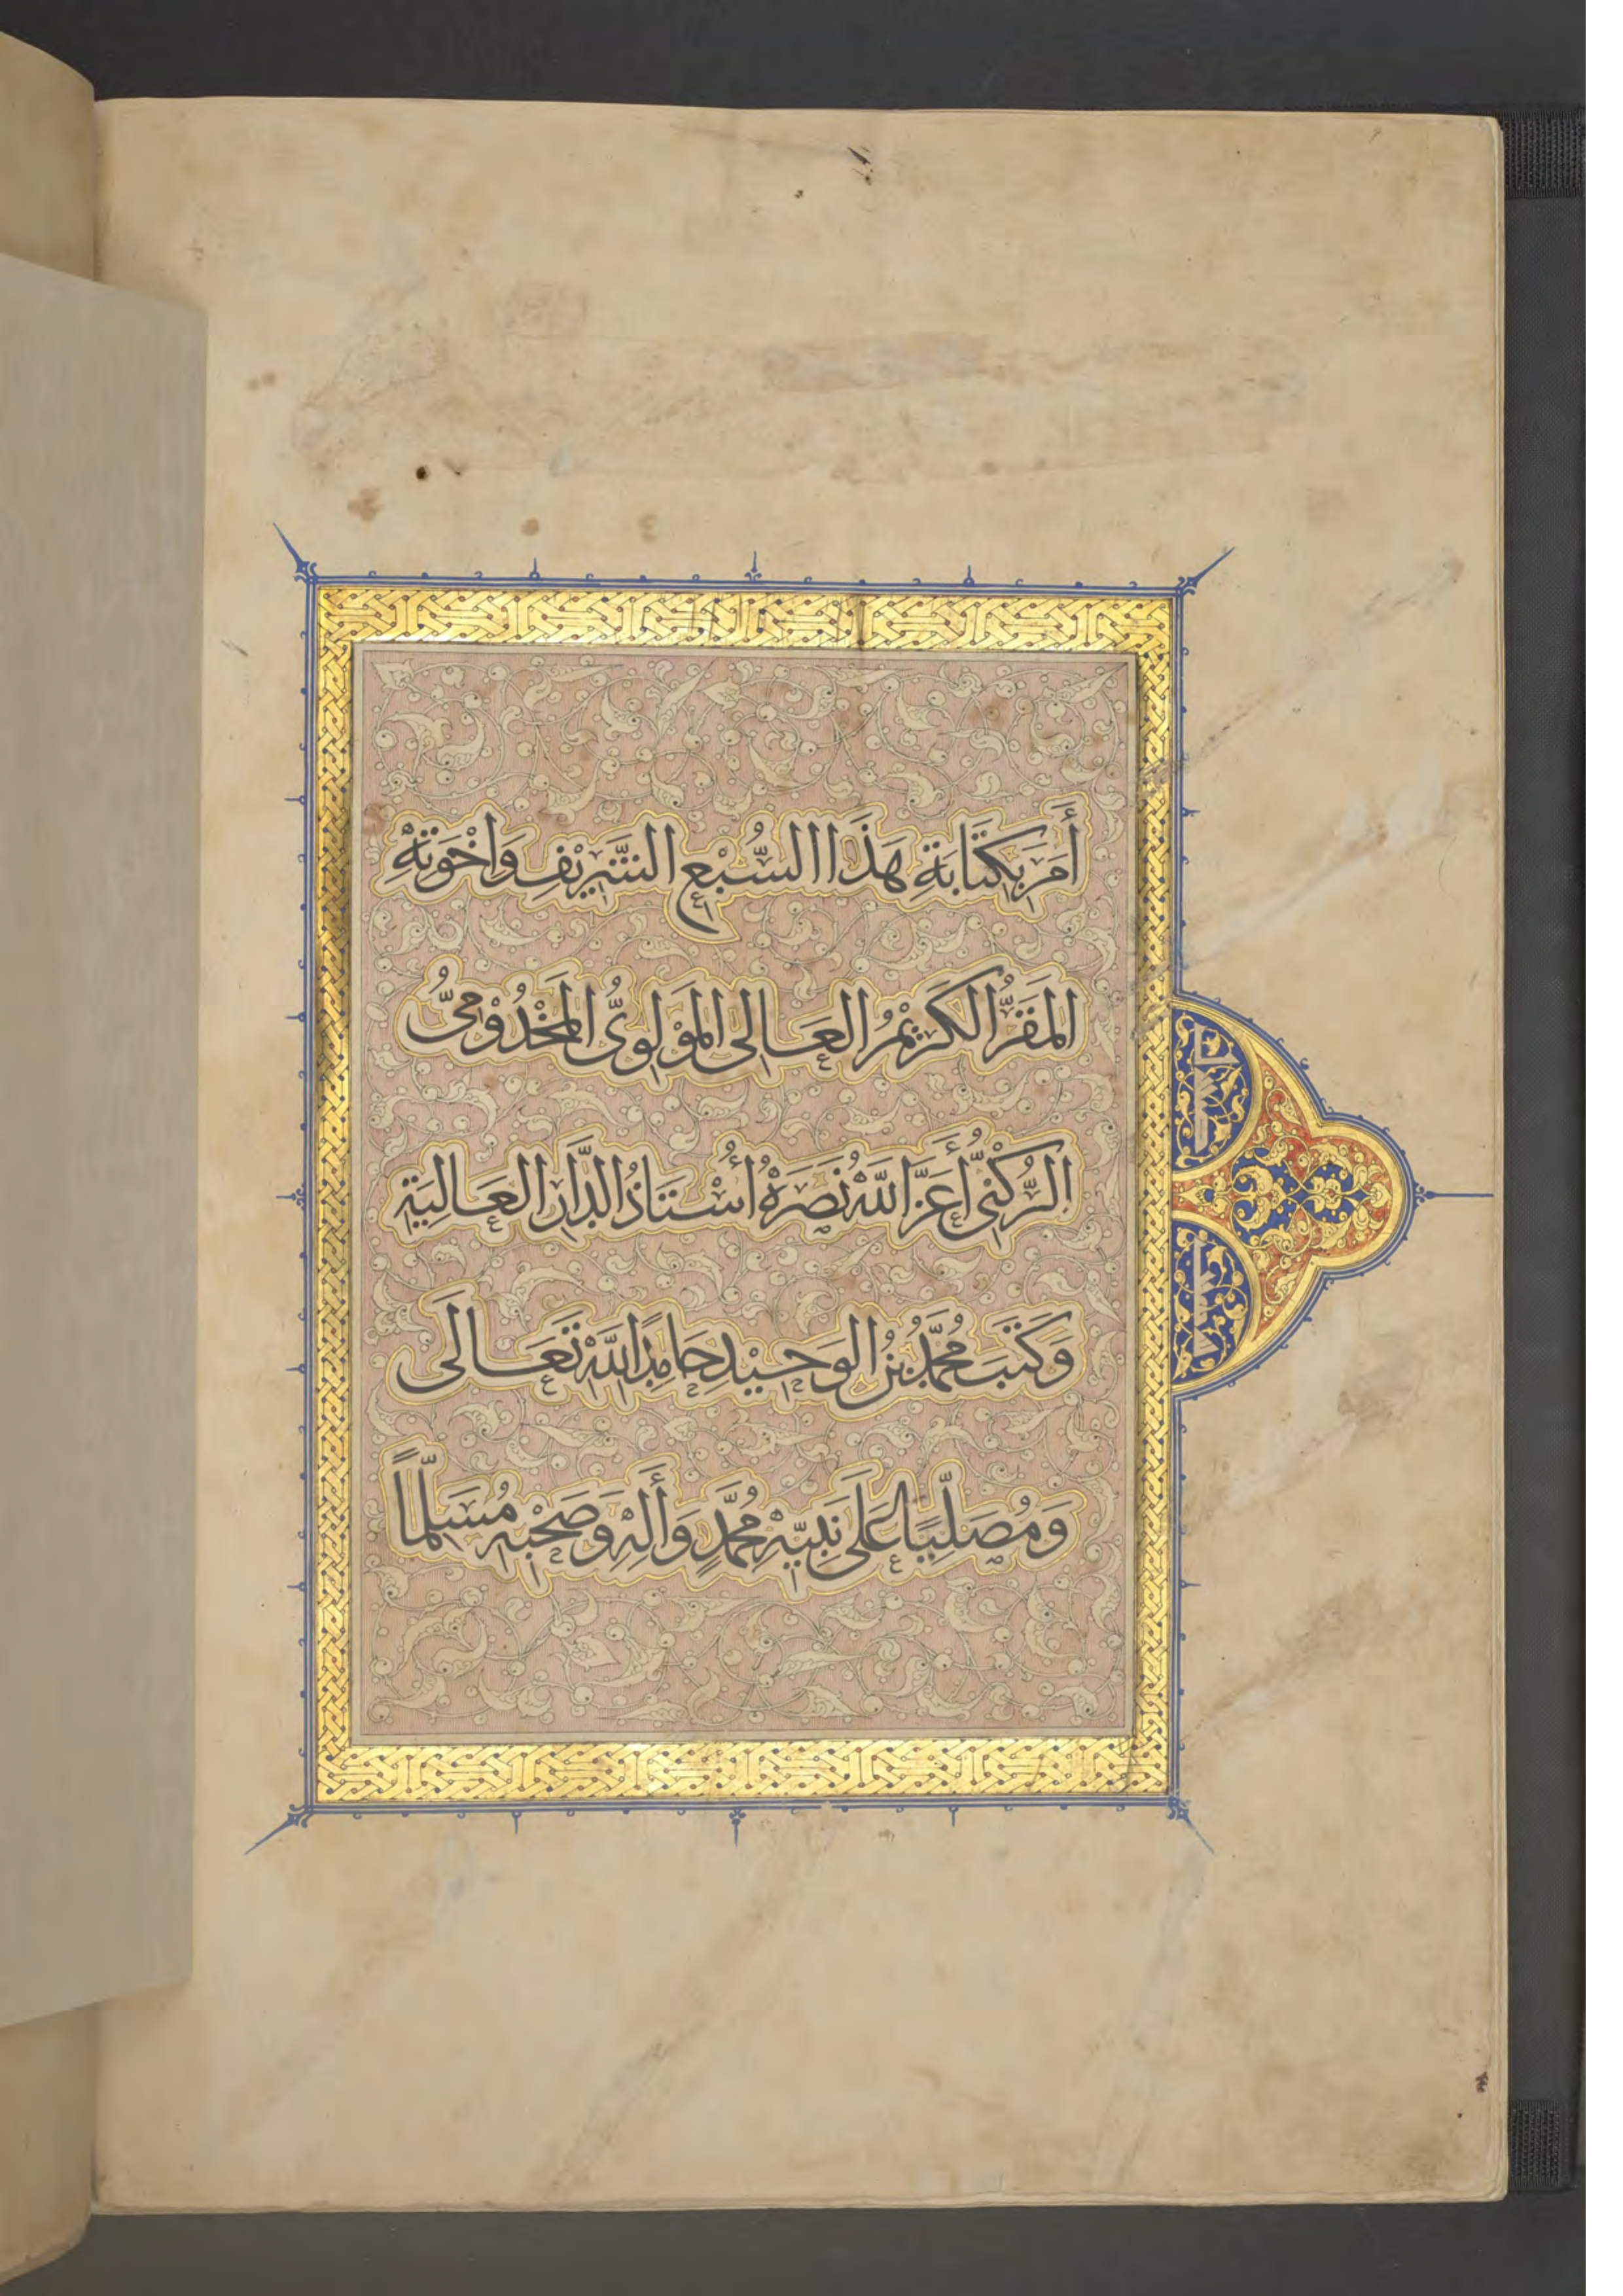 أَمَرَ بِكِتَابَةِ هَذَا السُّبْعِ الشَّرِيْفِ وَاخْوَتِهِ
المَقَرُّ الكَرِيْمُ العَالِى المَوْلَوِىُّ المَخْدُوْمِىُّ
الرُّكْنِىُّ أَعَزَّ اللّٰهُ نَصَرَهُ أُسْتَاذُ الدَّارِ العَالِيَةِ
وَكَتَبَ مُحَمَّدُ بْنُ الوَحِيْدِ حَامِدًا للّٰهِ تَعَالَى
وَمُصَلِّيًا عَلَى نَبِيِّهِ مُحَمَّدٍ وَأَلِهِ وَصَحْبِهِ مُسَلِّمًا